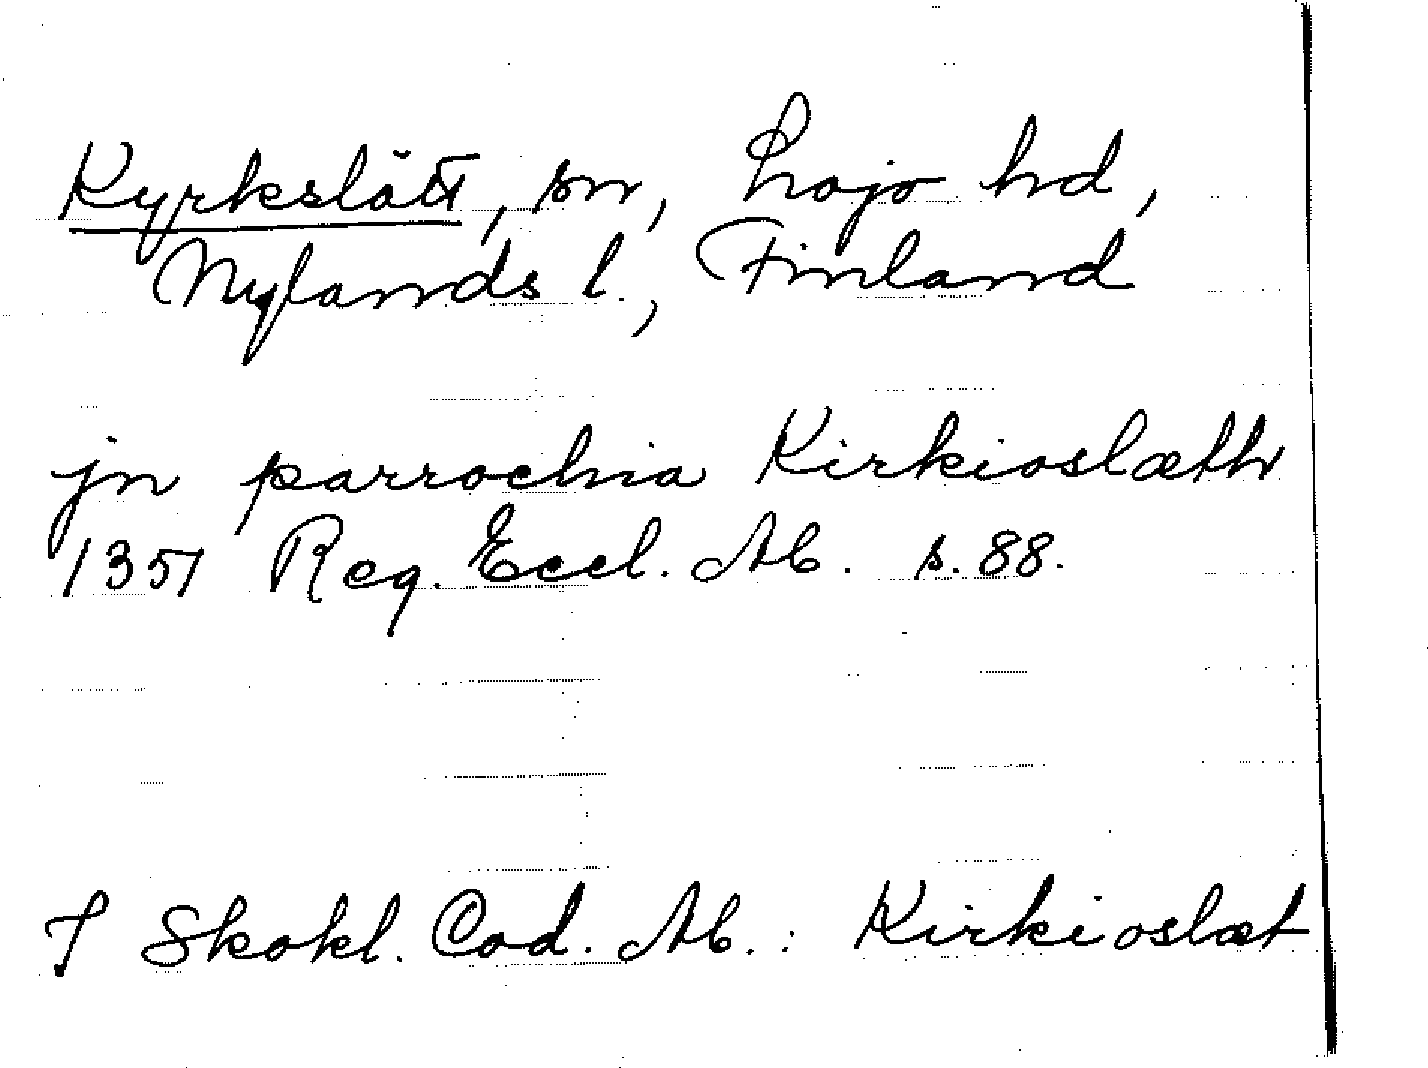 Kyrkslätt, sn, Lojo hd,
Nylands l., Finland
jn parrochia Kirkioslæth
1351 Reg. Eccl. Ab. s. 88.
I Skokl. Cod. Ab.: Kirkioslæt